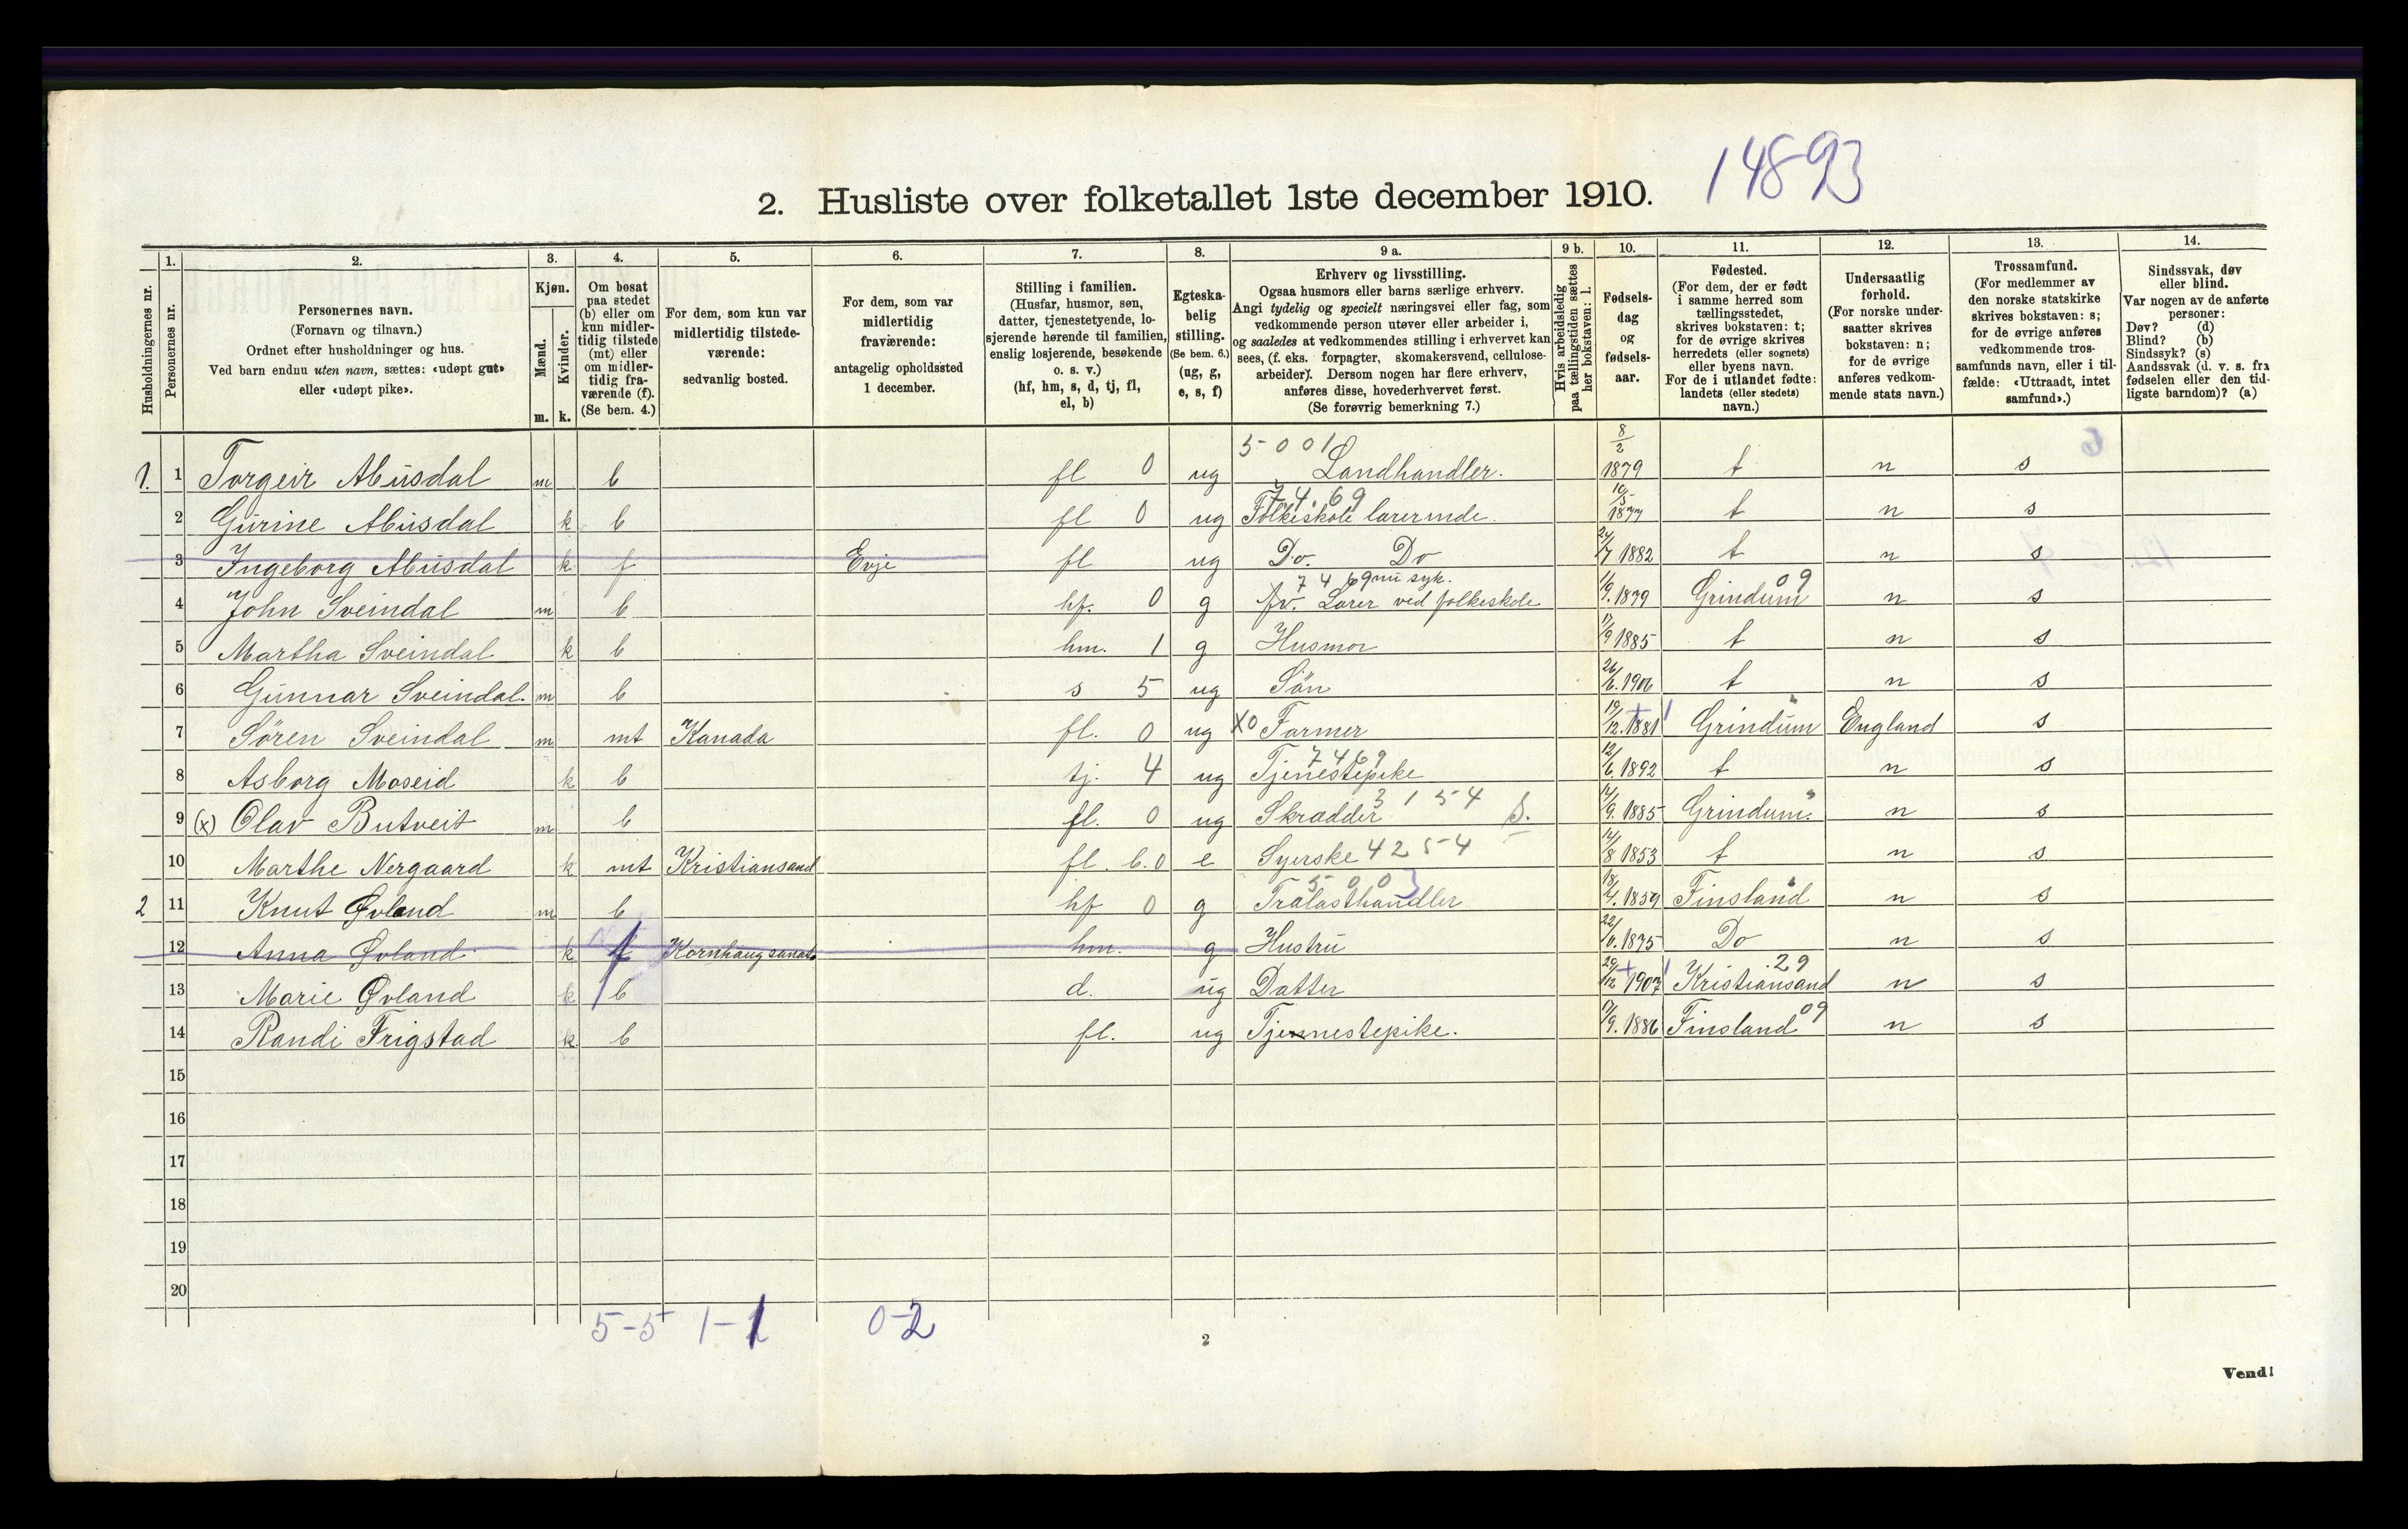 14893
2. Husliste over folketallet 1ste december 1910.
Husholdningernes nr.
1. Personernes nr.
2. Personernes navn. (Fornavn og tilnavn.) Ordnet efter husholdninger og hus. Ved barn endnu uten navn, sættes: «udøpt gut» eller «udøpt pike».
3. Kjøn. Mænd. m. Kvinder. k.
4. Om bosat paa stedet (b) eller om kun midlertidig tilstede (mt) eller om midlertidig fraværende (f). (Se bem. 4.)
5. For dem, som kun var midlertidig tilstedeværende: sedvanlig bosted.
6. For dem, som var midlertidig fraværende: antagelig opholdssted 1 december.
7. Stilling i familien. (Husfar, husmor, søn, datter, tjenestetyende, losjerende hørende til familien, enslig losjerende, besøkende o. s. v.) (hf, hm, s, d, tj, fl, el, b)
8. Egteskabelig stilling. (Se bem. 6.) (ug, g, e, s, f)
9 a. Erhverv og livsstilling. Ogsaa husmors eller barns særlige erhverv. Angi tydelig og specielt næringsvei eller fag, som vedkommende person utøver eller arbeider i, og saaledes at vedkommendes stilling i erhvervet kan sees, (f. eks. forpagter, skomakersvend, cellulosearbeider). Dersom nogen har flere erhverv, anføres disse, hovederhvervet først. (Se forøvrig bemerkning 7.)
9 b. Hvis arbeidsledig paa tællingstiden sættes her bokstaven: l.
10. Fødselsdag og fødselsaar.
11. Fødested. (For dem, der er født i samme herred som tællingsstedet, skrives bokstaven: t; for de øvrige skrives herredets (eller sognets) eller byens navn. For de i utlandet fødte: landets (eller stedets) navn.)
12. Undersaatlig forhold. (For norske undersaatter skrives bokstaven: n; for de øvrige anføres vedkommende stats navn.)
13. Trossamfund. (For medlemmer av den norske statskirke skrives bokstaven: s; for de øvrige anføres vedkommende trossamfunds navn, eller i tilfælde: «Uttraadt, intet samfund».)
14. Sindssvak, døv eller blind. Var nogen av de anførte personer: Døv? (d) Blind? (b) Sindssyk? (s) Aandssvak (d. v. s. fra fødselen eller den tidligste barndom)? (a)
1. 1 Torgeir Abusdal m b fl 0 ug 5001 Landhandler. 8/2 1879 t n s
2 Gurine Abusdal k b fl 0 ug 7469 Folkeskole lærerinde. 10/5 1877 t n s
3 Ingeborg Abusdal k f Evje fl ug Do. Do 24/7 1882 t n s
4 John Sveindal m b hf. 0 g 7469 nu syk. fv. Lærer ved folkeskole 11/9. 1879 Grindum 09 n s
5 Martha Sveindal k b hm. 1 g Husmor 11/9 1885 t n s
6 Gunnar Sveindal. m b s 5 ug Søn 26/6. 1906 t n s
7 Søren Sveindal m mt Kanada fl. 0 ug X0 Farmer 19/12. 1881 Grindum England s
8 Asborg Moseid k b tj. 4 ug 7469 Tjenestepike 12/6. 1892 t n s
9 (x) Olav Butveit m b fl. 0 ug Skrædder 3154 S. 14/9. 1885 Grindum n s
10 Marthe Nergaard k mt Kristiansand fl. b. 0 e Syerske 4254 14/8 1853 t n s
2 11 Knut Øvland m b hf 0 g 5003 Trælasthandler 18/4. 1859 Finsland n s
12 Anna Øvland k f Kornhaug sanat. hm. g Hustru 1875 Do n s
13 Marie Øvland k b d. ug Datter 29/12 1907 Kristiansand 29 n s
14 Randi Frigstad k b fl. ug Tjennestepike. 17/9. 1886 Finsland 09 n s
15
16
17
18
19
20
5-5 1-1 0-2
2
Vend!